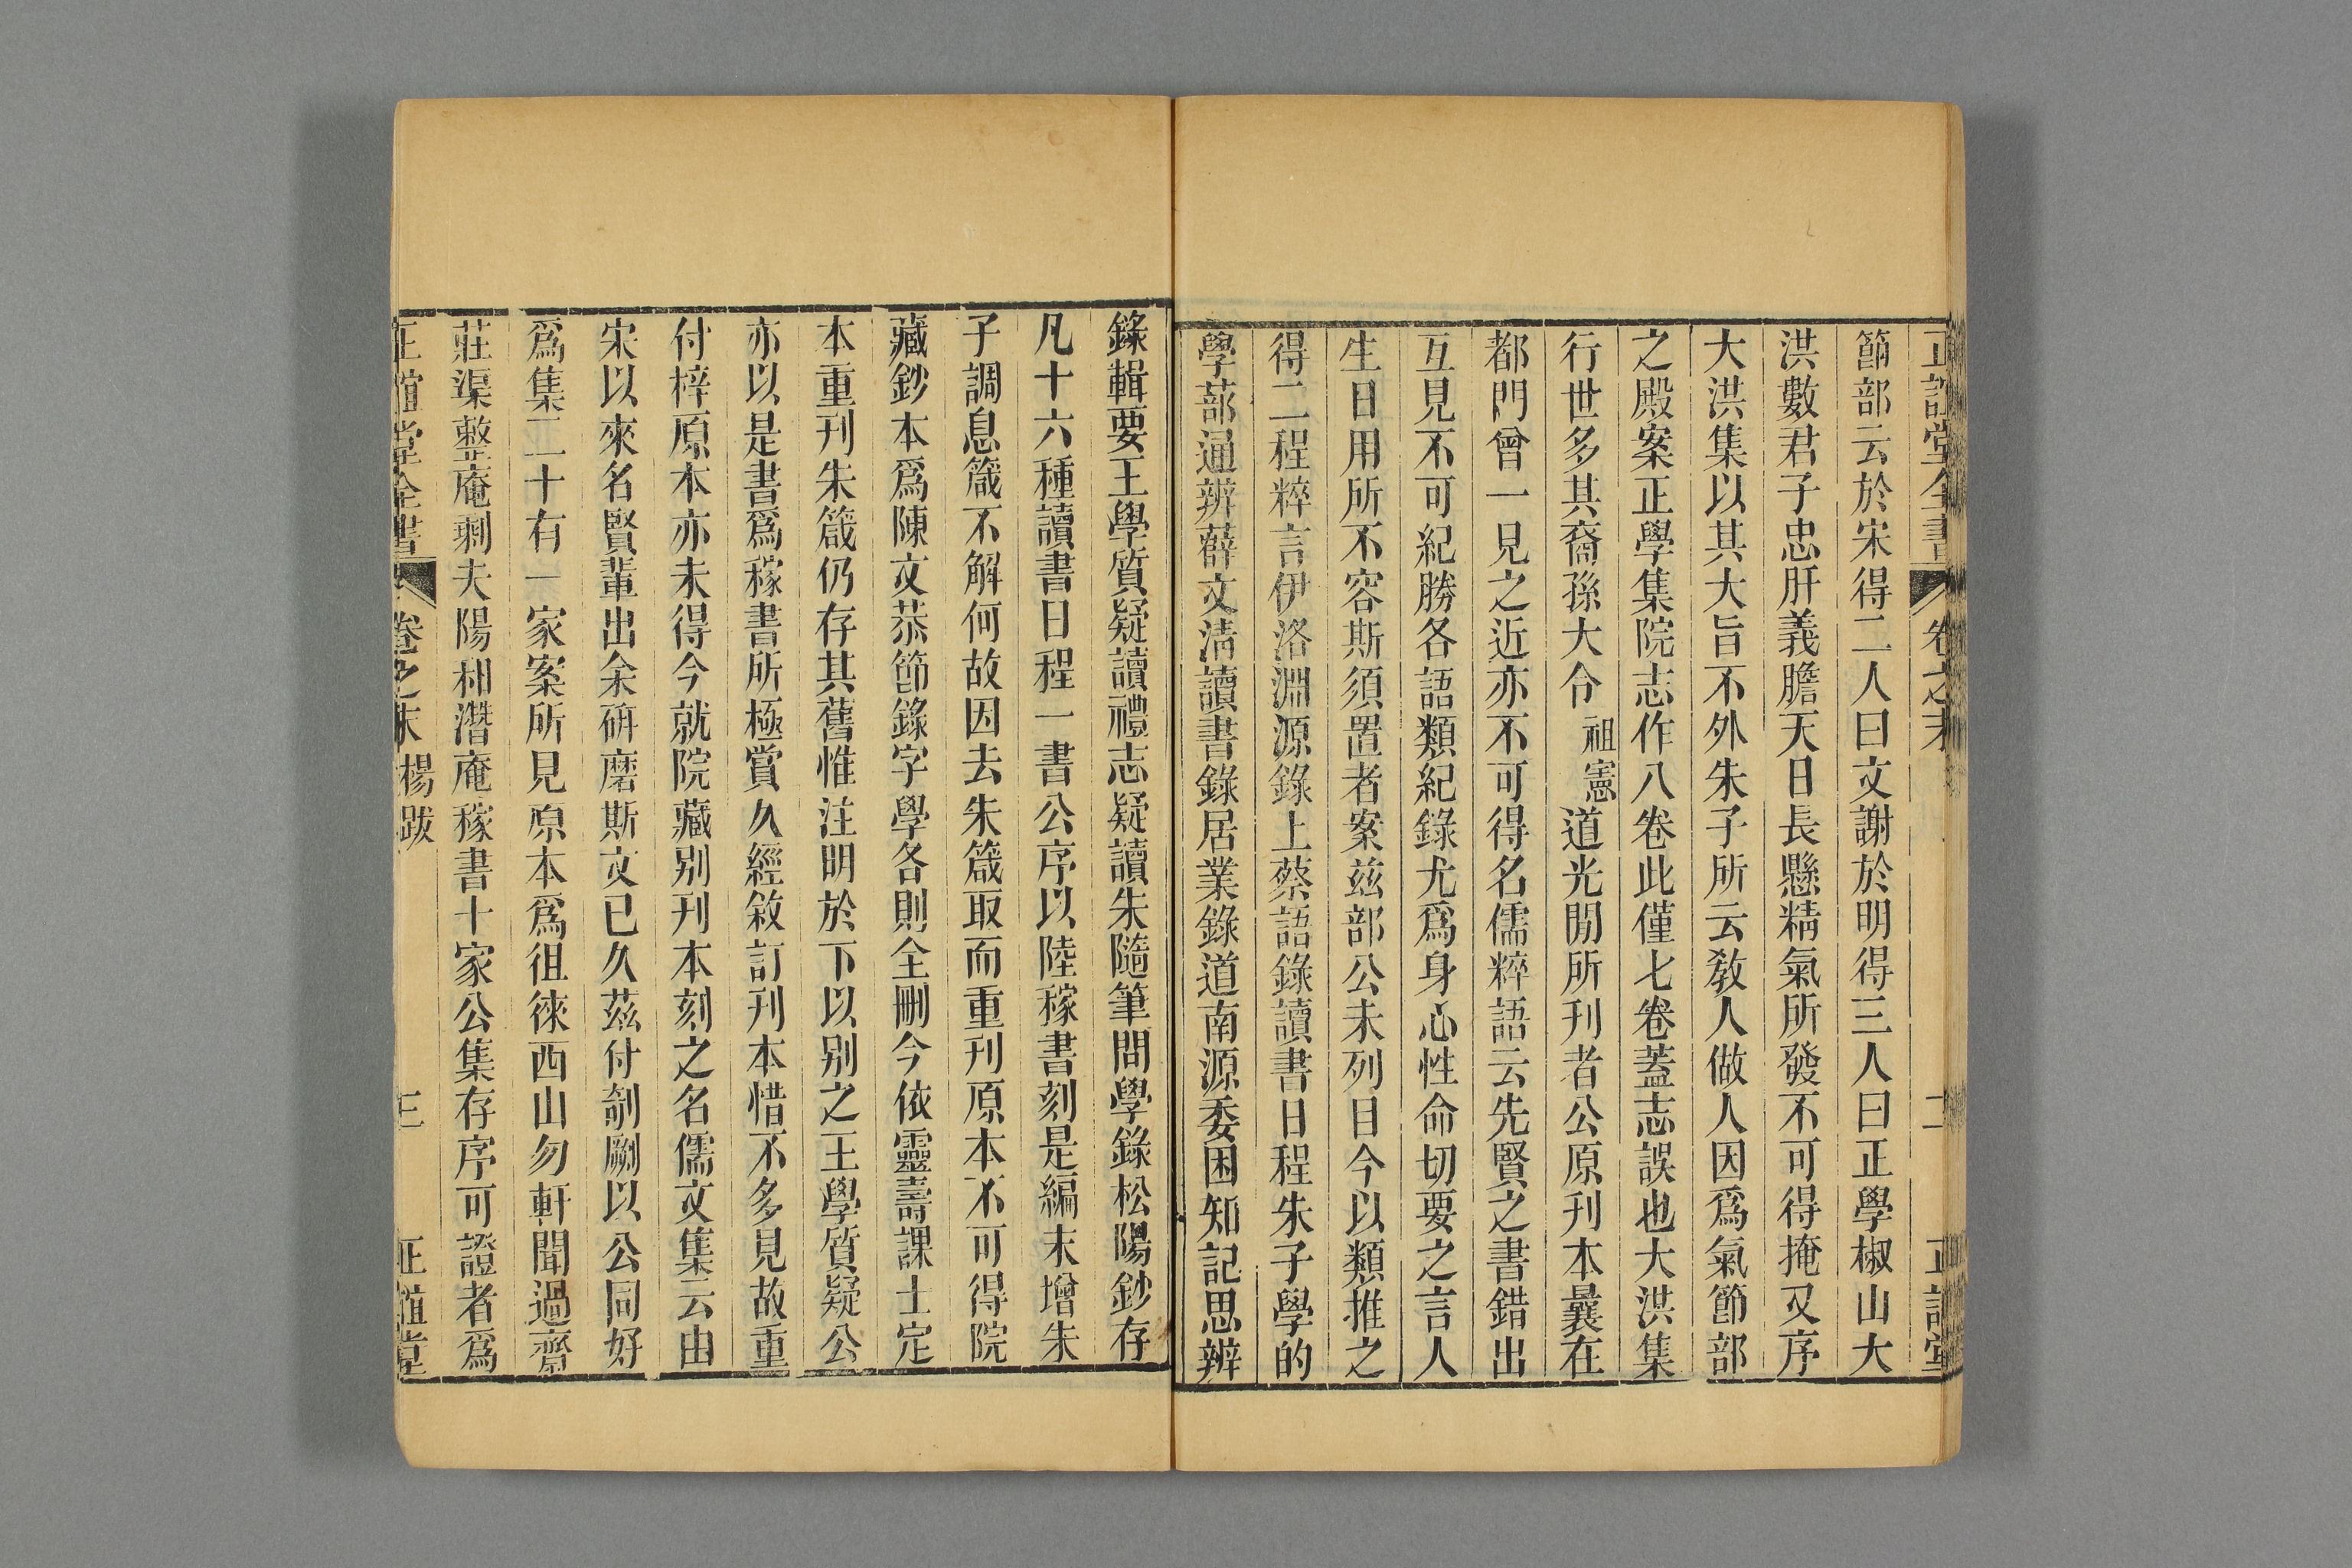 正誼堂全書 卷之末 二 正誼堂
節部云於宋得二人曰文謝於明得三人曰正學椒山大
洪數君子忠肝義膽天日長懸精氣所發不可得掩又序
大洪集以其大旨不外朱子所云教人做人因爲氣節部
之殿案正學集院志作八卷此僅七卷蓋志誤也大洪集
行世多其裔孫大令祖憲道光閒所刊者公原刊本曩在
都門曾一見之近亦不可得名儒粹語云先賢之書錯出
互見不可紀勝各語類紀錄尤爲身心性命切要之言人
生日用所不容斯須置者案茲部公未列目今以類推之
得二程粹言伊洛淵源錄上蔡語錄讀書日程朱子學的
學蔀通辨薛文淸讀書錄居業錄道南源委困知記思辨
錄輯要王學質疑讀禮志疑讀朱隨筆問學錄松陽鈔存
凡十六種讀書日程一書公序以陸稼書刻是編末增朱
子調息箴不解何故因去朱箴取而重刊原本不可得院
藏鈔本爲陳文恭節錄字學各則全刪今依靈壽課士定
本重刊朱箴仍存其舊惟注明於下以别之王學質疑公
亦以是書爲稼書所極賞久經敘訂刊本惜不多見故重
付梓原本亦未得今就院藏别刊本刻之名儒文集云由
宋以來名賢輩出余硏磨斯文已久茲付剞劂以公同好
爲集二十有一家案所見原本爲徂徠西山勿軒聞過齋
莊渠整庵剩夫陽和潛庵稼書十家公集存序可證者爲
正誼堂全書 卷之末 楊跋 三 正誼堂